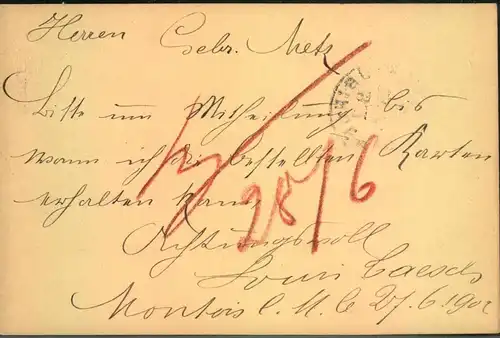 Herren Gebr. Metz
Bitte um Mittheilung bis
wann ich die bestellten Karten
erhalten kann
28/6
Achtungsvoll
Louis
Montois 27.6.1902